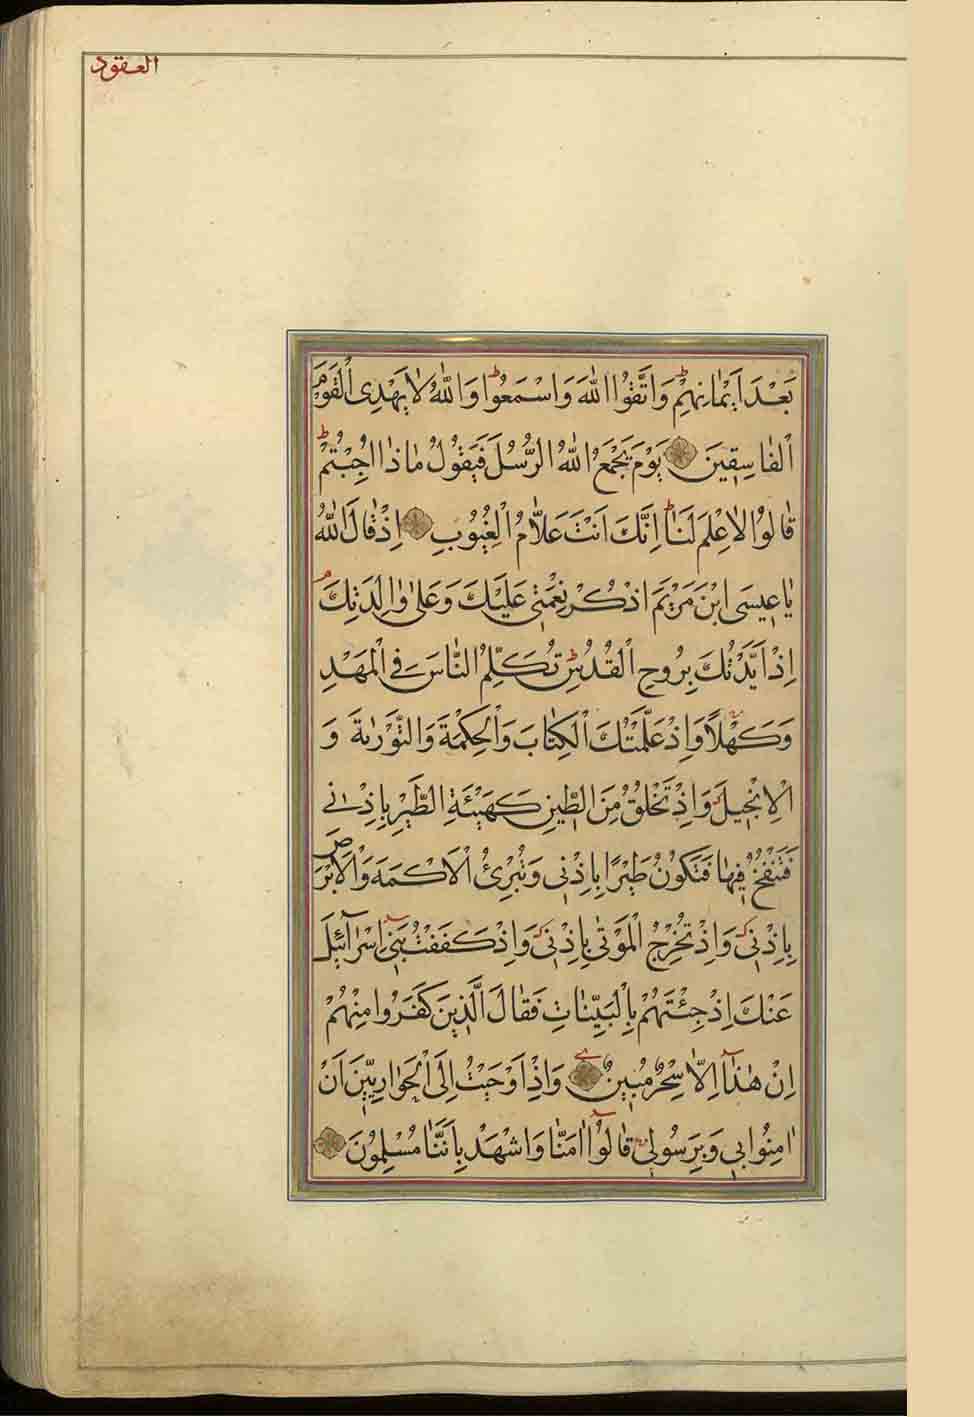 العقود
بَعْدَ اَيْمَانِهِمْ وَاتَّقُوا اللّٰهَ وَاسْمَعُوا وَاللّٰهُ لَا يَهْدِى الْقَوْمَ
الْفَاسِقِينَ يَوْمَ يَجْمَعُ اللّٰهُ الرُّسُلَ فَيَقُولُ مَاذَا اُجِبْتُمْ
قَالُوا لَا عِلْمَ لَنَا اِنَّكَ اَنْتَ عَلَّامُ الْغُيُوبِ اِذْ قَالَ اللّٰهُ
يَا عِيسَى ابْنَ مَرْيَمَ اذْكُرْ نِعْمَتِى عَلَيْكَ وَعَلٰى وَالِدَتِكَ
اِذْ اَيَّدْتُكَ بِرُوحِ الْقُدُسِ تُكَلِّمُ النَّاسَ فِى الْمَهْدِ
وَكَهْلًا وَاِذْ عَلَّمْتُكَ الْكِتَابَ وَالْحِكْمَةَ وَالتَّوْرٰيةَ وَ
الْاِنْجِيلَ وَاِذْ تَخْلُقُ مِنَ الطِّينِ كَهَيْئَةِ الطَّيْرِ بِاِذْنِى
فَتَنْفُخُ فِيهَا فَتَكُونُ طَيْرًا بِاِذْنِى وَتُبْرِئُ الْاَكْمَهَ وَالْاَبْرَصَ
بِاِذْنِى وَاِذْ تُخْرِجُ الْمَوْتٰى بِاِذْنِى وَاِذْ كَفَفْتُ بَنِى اِسْرَآئِيلَ
عَنْكَ اِذْ جِئْتَهُمْ بِالْبَيِّنَاتِ فَقَالَ الَّذِينَ كَفَرُوا مِنْهُمْ
اِنْ هٰذَا اِلَّا سِحْرٌ مُبِينٌ وَاِذْ اَوْحَيْتُ اِلَى الْحَوَارِيِّينَ اَنْ
اٰمِنُوا بِى وَبِرَسُولِى قَالُوا اٰمَنَّا وَاشْهَدْ بِاَنَّنَا مُسْلِمُونَ